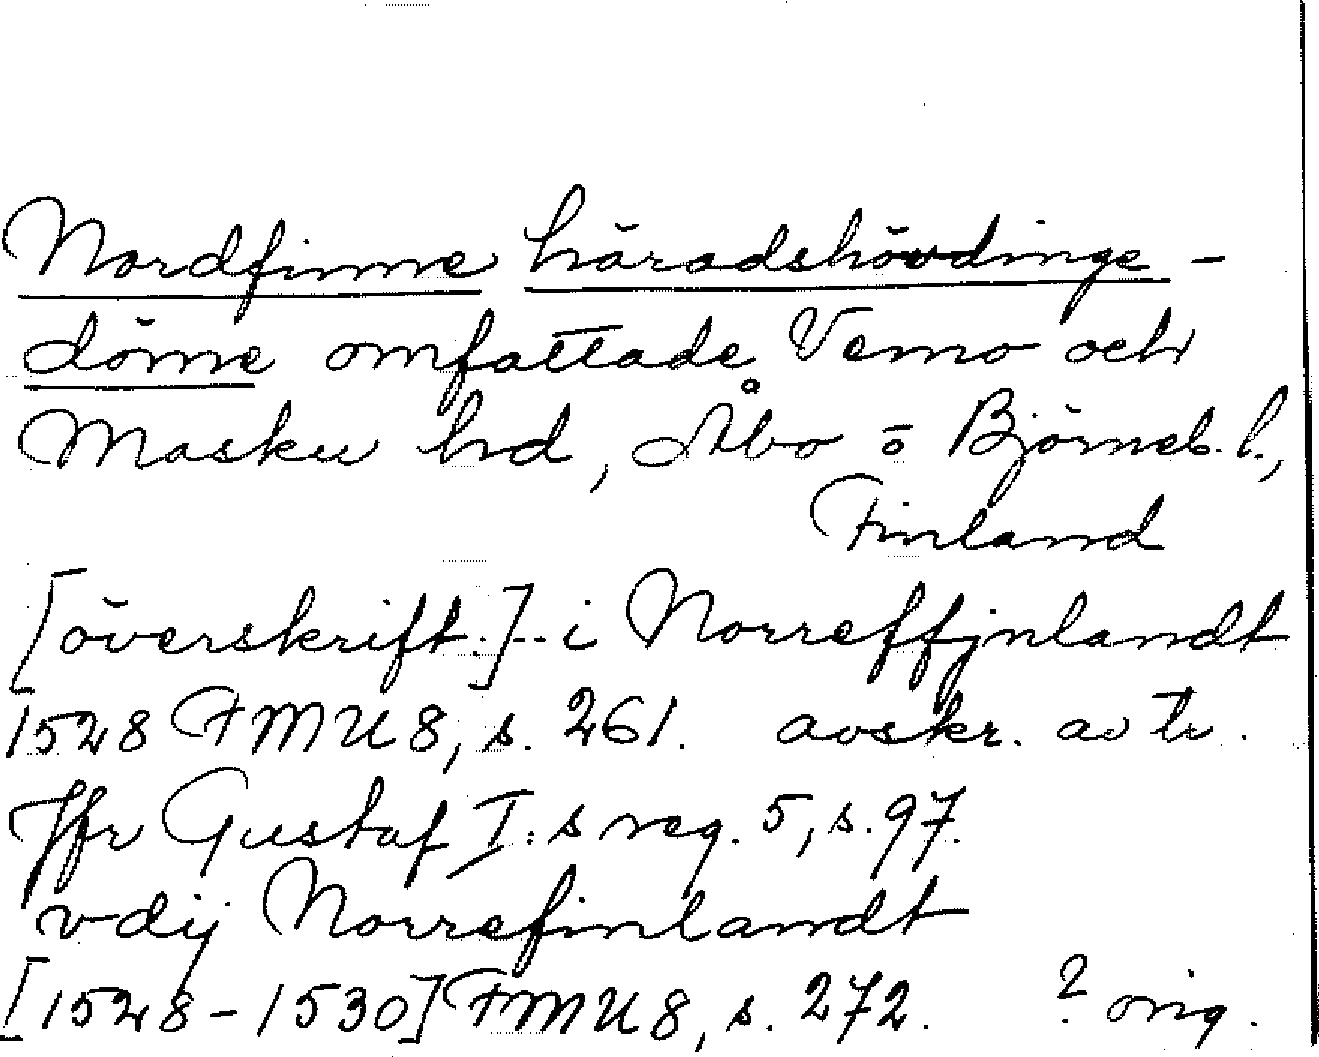 Nordfinne häradshövdinge-
döme omfattade Vemo och
Masku hrd, Åbo o Björneb. l.,
Finland
[överskrift.]. i Norreffjnlandt
1528 FMU 8, s. 261. avskr. av tr.
Jfr Gustaf I:s reg. 5, s. 97.
vdij Norrefinlandt
[1528-1530] FMU 8, s. 272. ? orig.